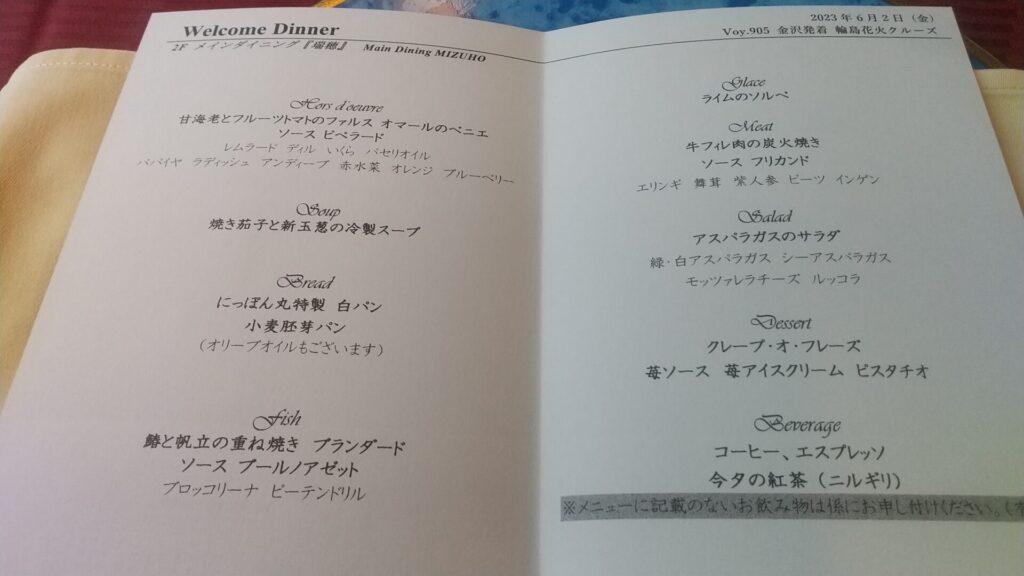 Welcome Dinner
2F メインダイニング『瑞穂』 Main Dining MIZUHO
Hors d'oeuvre
甘海老とフルーツトマトのファルス オマールのベニエ
ソース ピペラード
レムラード ディル いくら パセリオイル
パパイヤ ラディッシュ アンディーブ 赤水菜 オレンジ ブルーベリー
Soup
焼き茄子と新玉葱の冷製スープ
Bread
にっぽん丸特製 白パン
小麦胚芽パン
(オリーブオイルもございます)
Fish
鰆と帆立の重ね焼き ブランダード
ソース ブールノアゼット
ブロッコリーナ ピーテンドリル
2023年6月2日(金)
Voy.905 金沢発着 輪島花火クルーズ
Glace
ライムのソルベ
Meat
牛フィレ肉の炭火焼き
ソース フリカンド
エリンギ 舞茸 紫人参 ビーツ インゲン
Salad
アスパラガスのサラダ
緑・白アスパラガス シーアスパラガス
モッツァレラチーズ ルッコラ
Dessert
クレープ・オ・フレーズ
苺ソース 苺アイスクリーム ピスタチオ
Beverage
コーヒー、エスプレッソ
今夕の紅茶(ニルギリ)
※メニューに記載のないお飲み物は係にお申し付けください。(